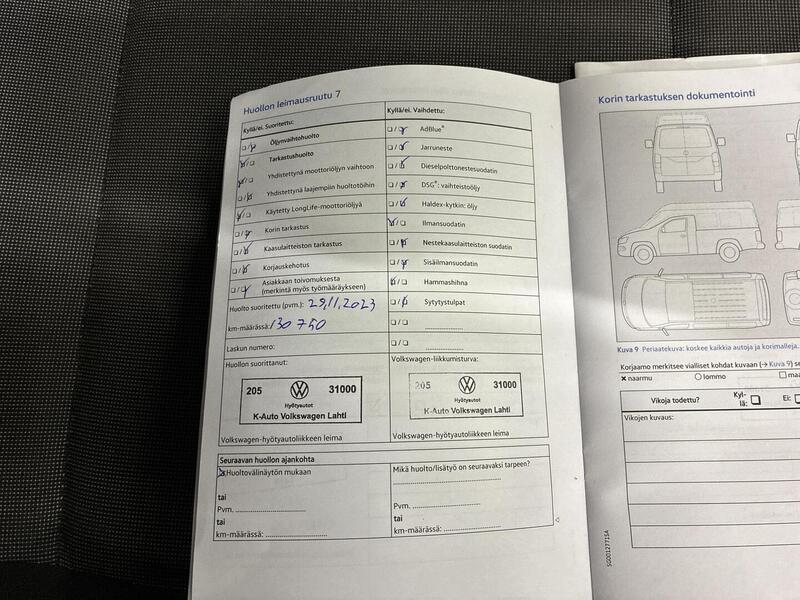 Huollon leimausruutu 7
Kyllä/ei. Suoritettu:
Öljynvaihtohuolto
Tarkastushuolto
Yhdistettynä moottoriöljyn vaihtoon
Yhdistettynä laajempiin huoltotöihin
Käytetty LongLife-moottoriöljyä
Korin tarkastus
Kaasulaitteiston tarkastus
Korjauskehotus
Asiakkaan toivomuksesta
(merkintä myös työmääräykseen)
Huolto suoritettu (pvm.): 29.11.2023
km-määrässä: 130 750
Laskun numero:
Huollon suorittanut:
205 31000
Hyötyautot
K-Auto Volkswagen Lahti
Volkswagen-hyötyautoliikkeen leima
Kyllä/ei. Vaihdettu:
AdBlue®
Jarruneste
Dieselpolttonestesuodatin
DSG®: vaihteistoöljy
Haldex-kytkin: öljy
Ilmansuodatin
Nestekaasulaitteiston suodatin
Sisäilmansuodatin
Hammashihna
Sytytystulpat
Volkswagen-liikkumisturva:
205 31000
Hyötyautot
K-Auto Volkswagen Lahti
Volkswagen-hyötyautoliikkeen leima
Seuraavan huollon ajankohta
Huoltovälinäytön mukaan
tai
Pvm.
tai
km-määrässä:
Mikä huolto/lisätyö on seuraavaksi tarpeen?
Pvm.
tai
km-määrässä:
Korin tarkastuksen dokumentointi
Kuva 9 Periaatekuva: koskee kaikkia autoja ja korimalleja.
Korjaamo merkitsee vialliset kohdat kuvaan (→ Kuva 9) se
naarmu lommo maa
Vikoja todettu? Kyl-
lä: Ei:
Vikojen kuvaus: